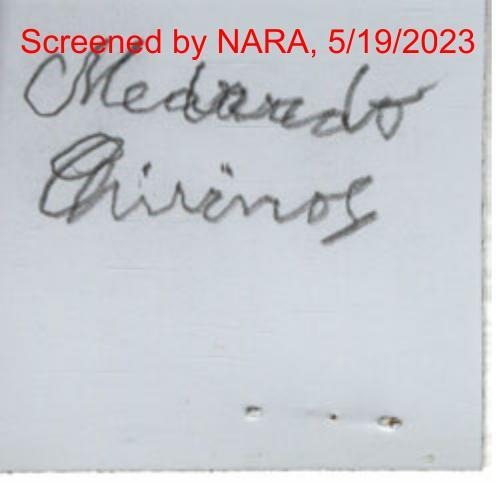 Screened by NARA, 5/19/2023
Medardo
Chirinos